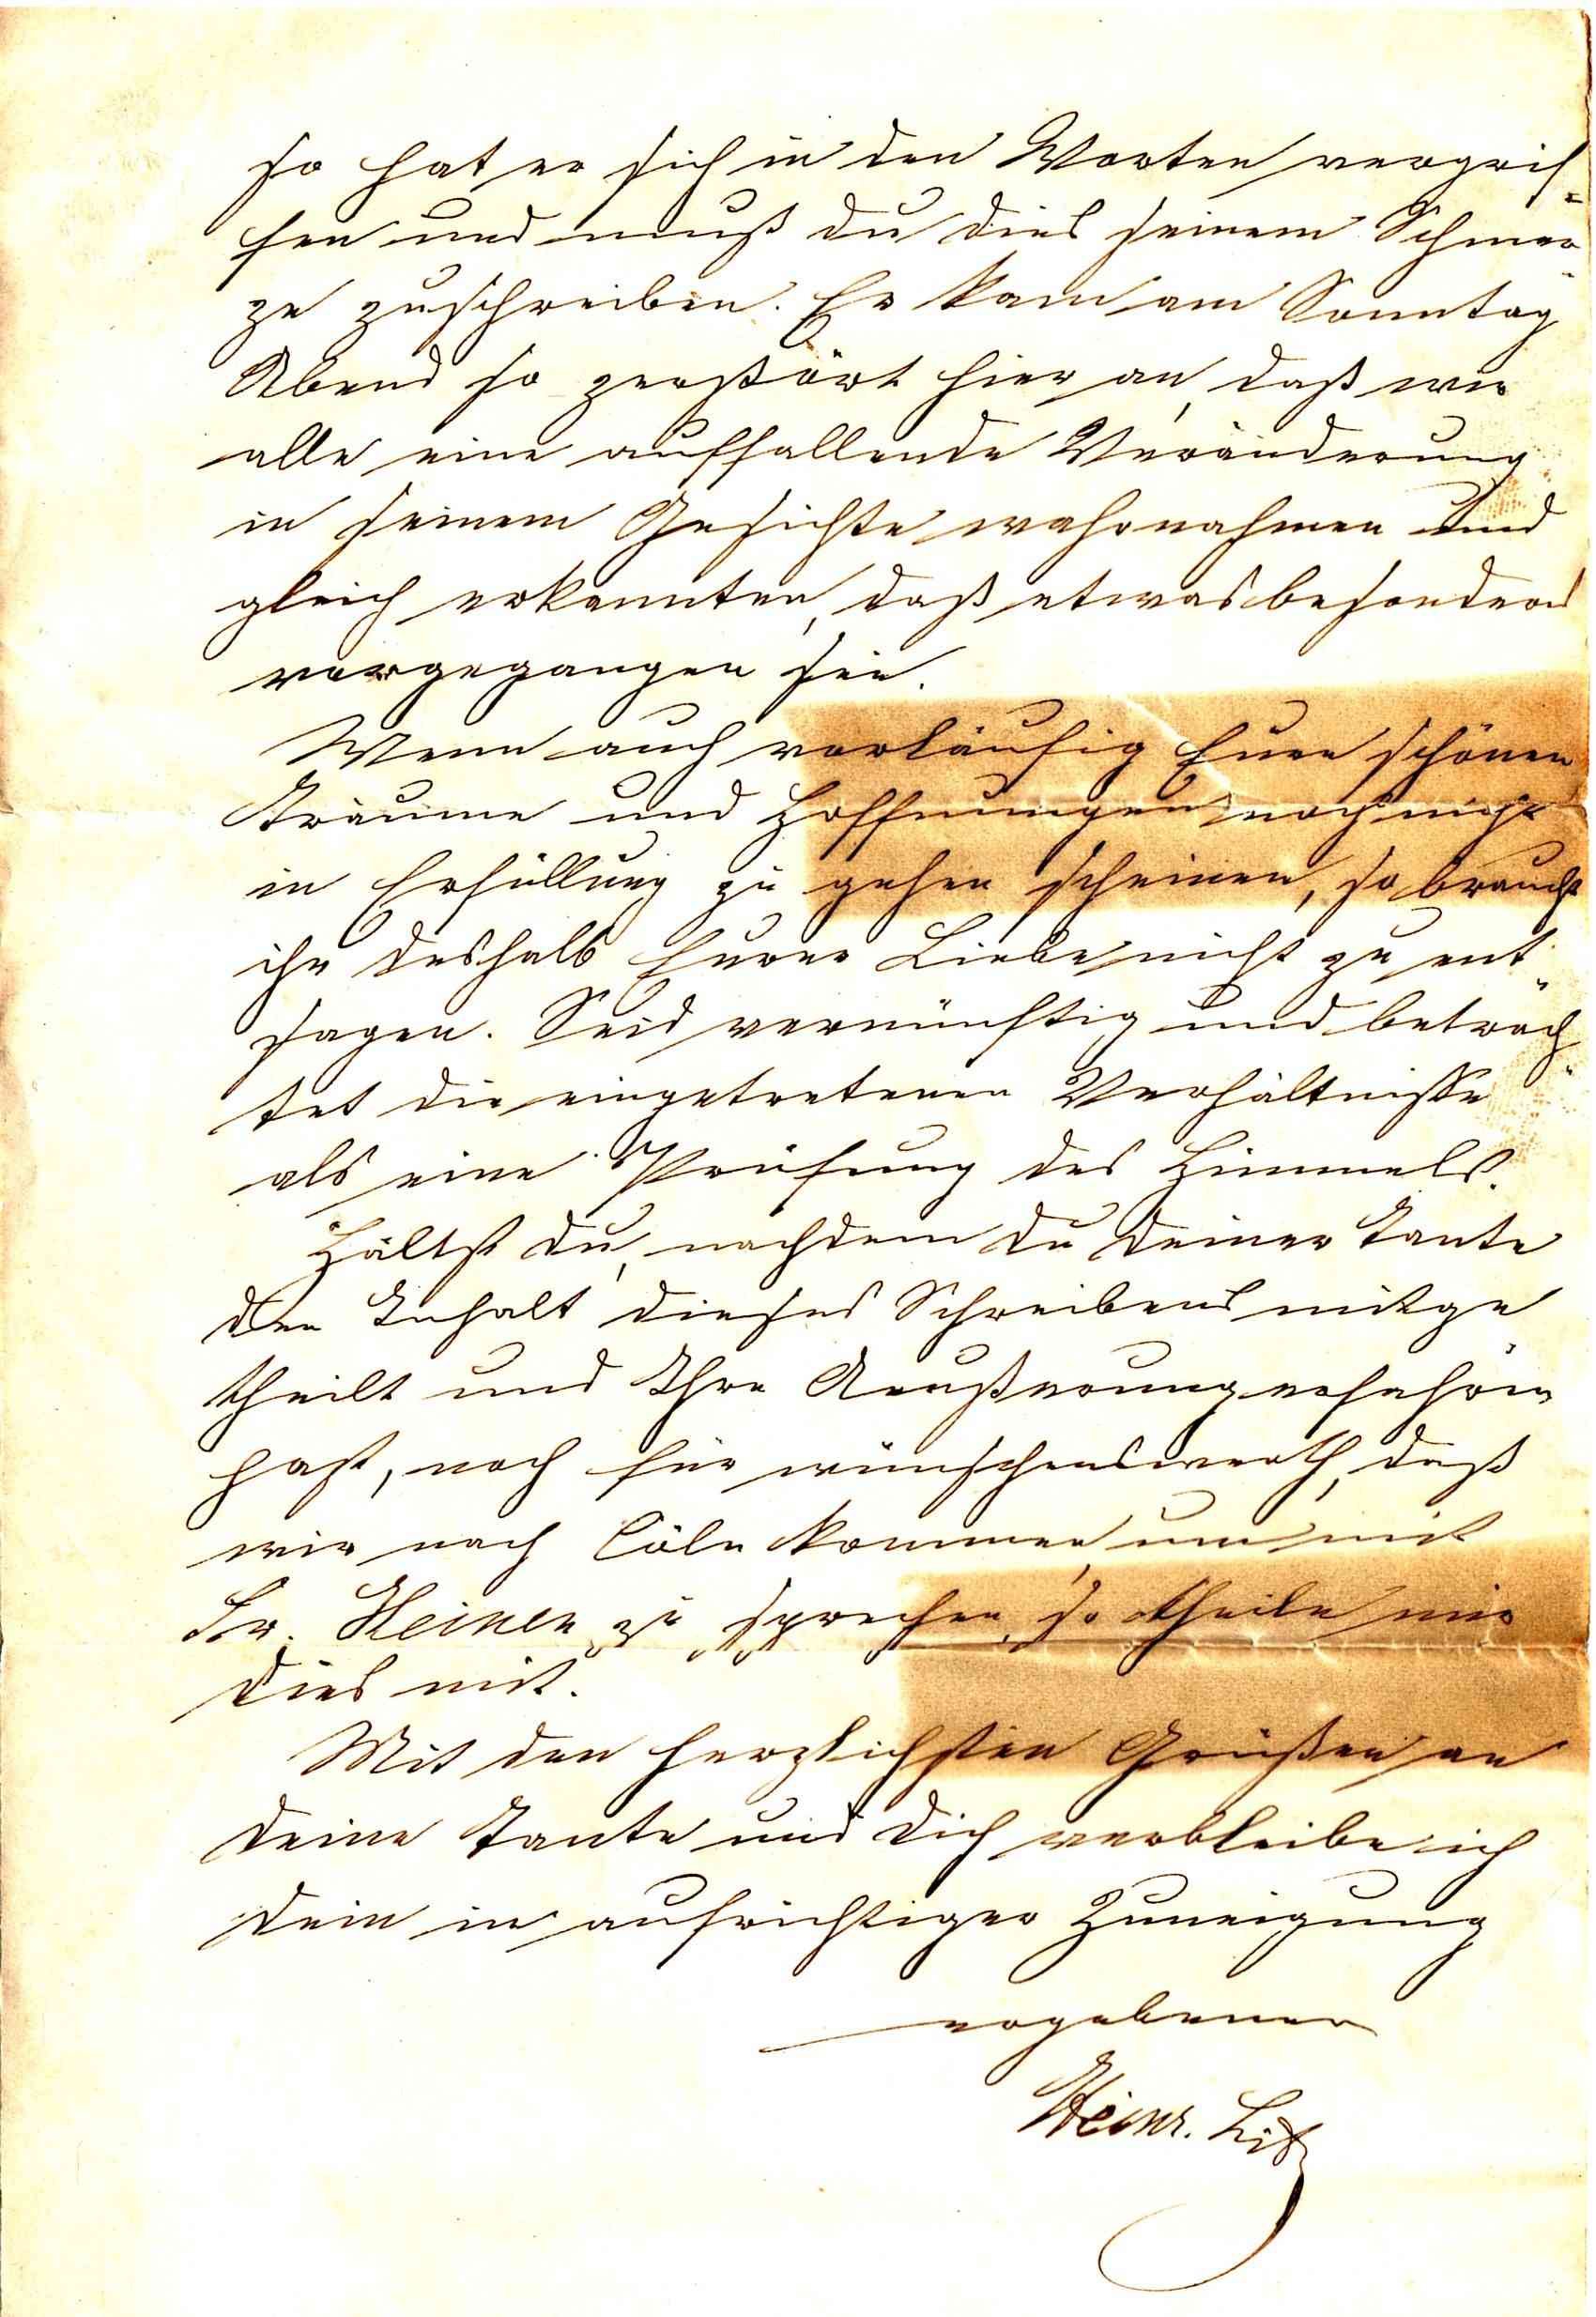 so hat er sich in den Worten vergrif=
fen und muß du dies seinem Schmer=
ze zuschreiben. Er kam am Sonntag
Abend so zerstört hier an, daß wir
alle eine auffallende Veränderung
in seinem Gesichte wahrnahmen und
gleich erkannten, daß etwas besonders
vorgegangen sei.
Wenn auch vorläufig Eure schönen
Träume und Hoffnungen noch nicht
in Erfüllung zu gehen scheinen, so braucht
ihr deshalb Eurer Liebe nicht zu ent=
sagen. Seid vernünftig und betrach=
tet die eingetretenen Verhältnisse
als eine Prüfung des Himmels.
Hältst du, nachdem du deiner Tante
den Inhalt dieses Schreibens mitge=
theilt und Ihre Aeußerung erfahren
hast, noch für wünschenswerth, daß
wir nach Cöln kommen, um mit
Hr. Heinen zu sprechen, so theile mir
dies mit.
Mit den herzlichsten Grüßen an
deine Tante und dich verbleibe ich
dein in aufrichtiger Zuneigung
ergebener
Heinr.